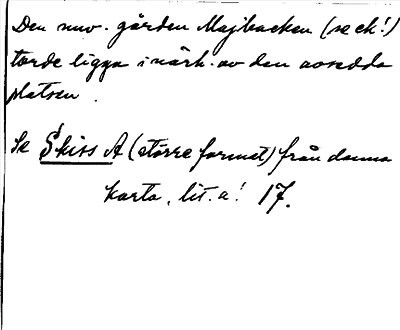 Den nuv. gården Majbacken (se ek!)
torde ligga i närh. av den avsedda
platsen.
Se Skiss A (större format) från denna
karta, lit. a! 17.